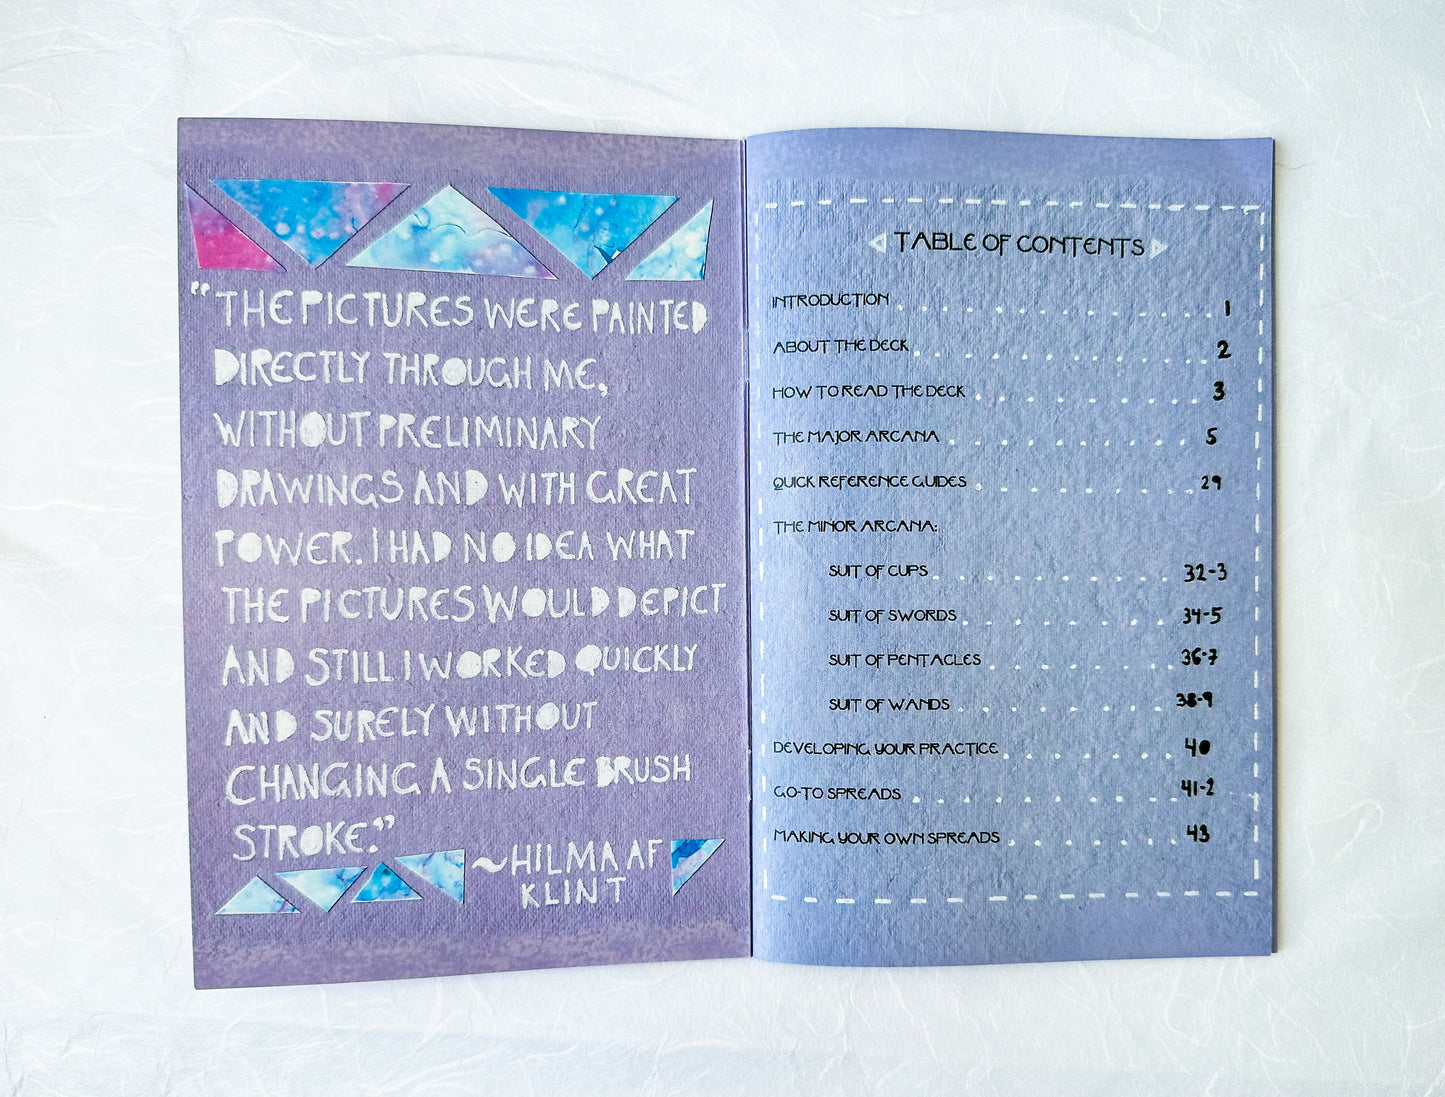 “THE PICTURES WERE PAINTED
DIRECTLY THROUGH ME,
WITHOUT PRELIMINARY
DRAWINGS AND WITH GREAT
POWER. I HAD NO IDEA WHAT
THE PICTURES WOULD DEPICT
AND STILL I WORKED QUICKLY
AND SURELY WITHOUT
CHANGING A SINGLE BRUSH
STROKE.”
~HILMA AF
KLINT
TABLE OF CONTENTS
INTRODUCTION . . . . . . . . . . . . . . 1
ABOUT THE DECK . . . . . . . . . . . . . 2
HOW TO READ THE DECK . . . . . . . . . . 3
THE MAJOR ARCANA . . . . . . . . . . . . 5
QUICK REFERENCE GUIDES . . . . . . . . . . 29
THE MINOR ARCANA:
SUIT OF CUPS . . . . . . . . . . . 32-3
SUIT OF SWORDS . . . . . . . . . . 34-5
SUIT OF PENTACLES . . . . . . . . . 36-7
SUIT OF WANDS . . . . . . . . . . 38-9
DEVELOPING YOUR PRACTICE . . . . . . . . 40
GO-TO SPREADS . . . . . . . . . . . . 41-2
MAKING YOUR OWN SPREADS . . . . . . . . 43